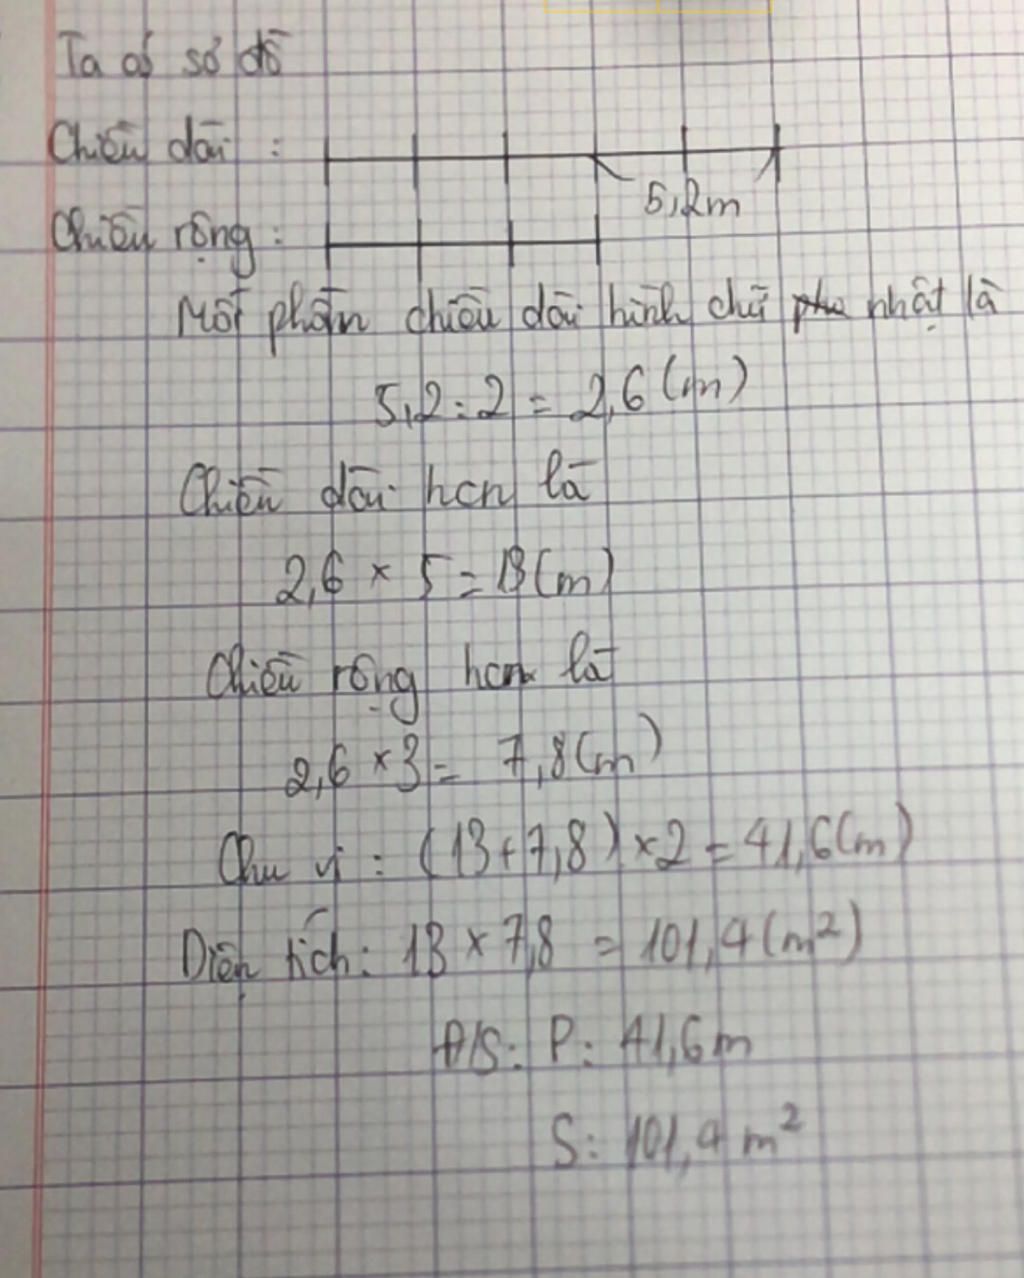 Ta có sơ đồ
Chiều dài :
5,2m
Chiều rộng :
Một phần chiều dài hình chữ nhật là
5,2 : 2 = 2,6 (m)
Chiều dài hcn là
2,6 × 5 = 13 (m)
Chiều rộng hcn là
2,6 × 3 = 7,8 (m)
Chu vi : (13 + 7,8) × 2 = 41,6 (m)
Diện tích : 13 × 7,8 = 101,4 (m²)
Đ/S : P : 41,6 m
S : 101,4 m²